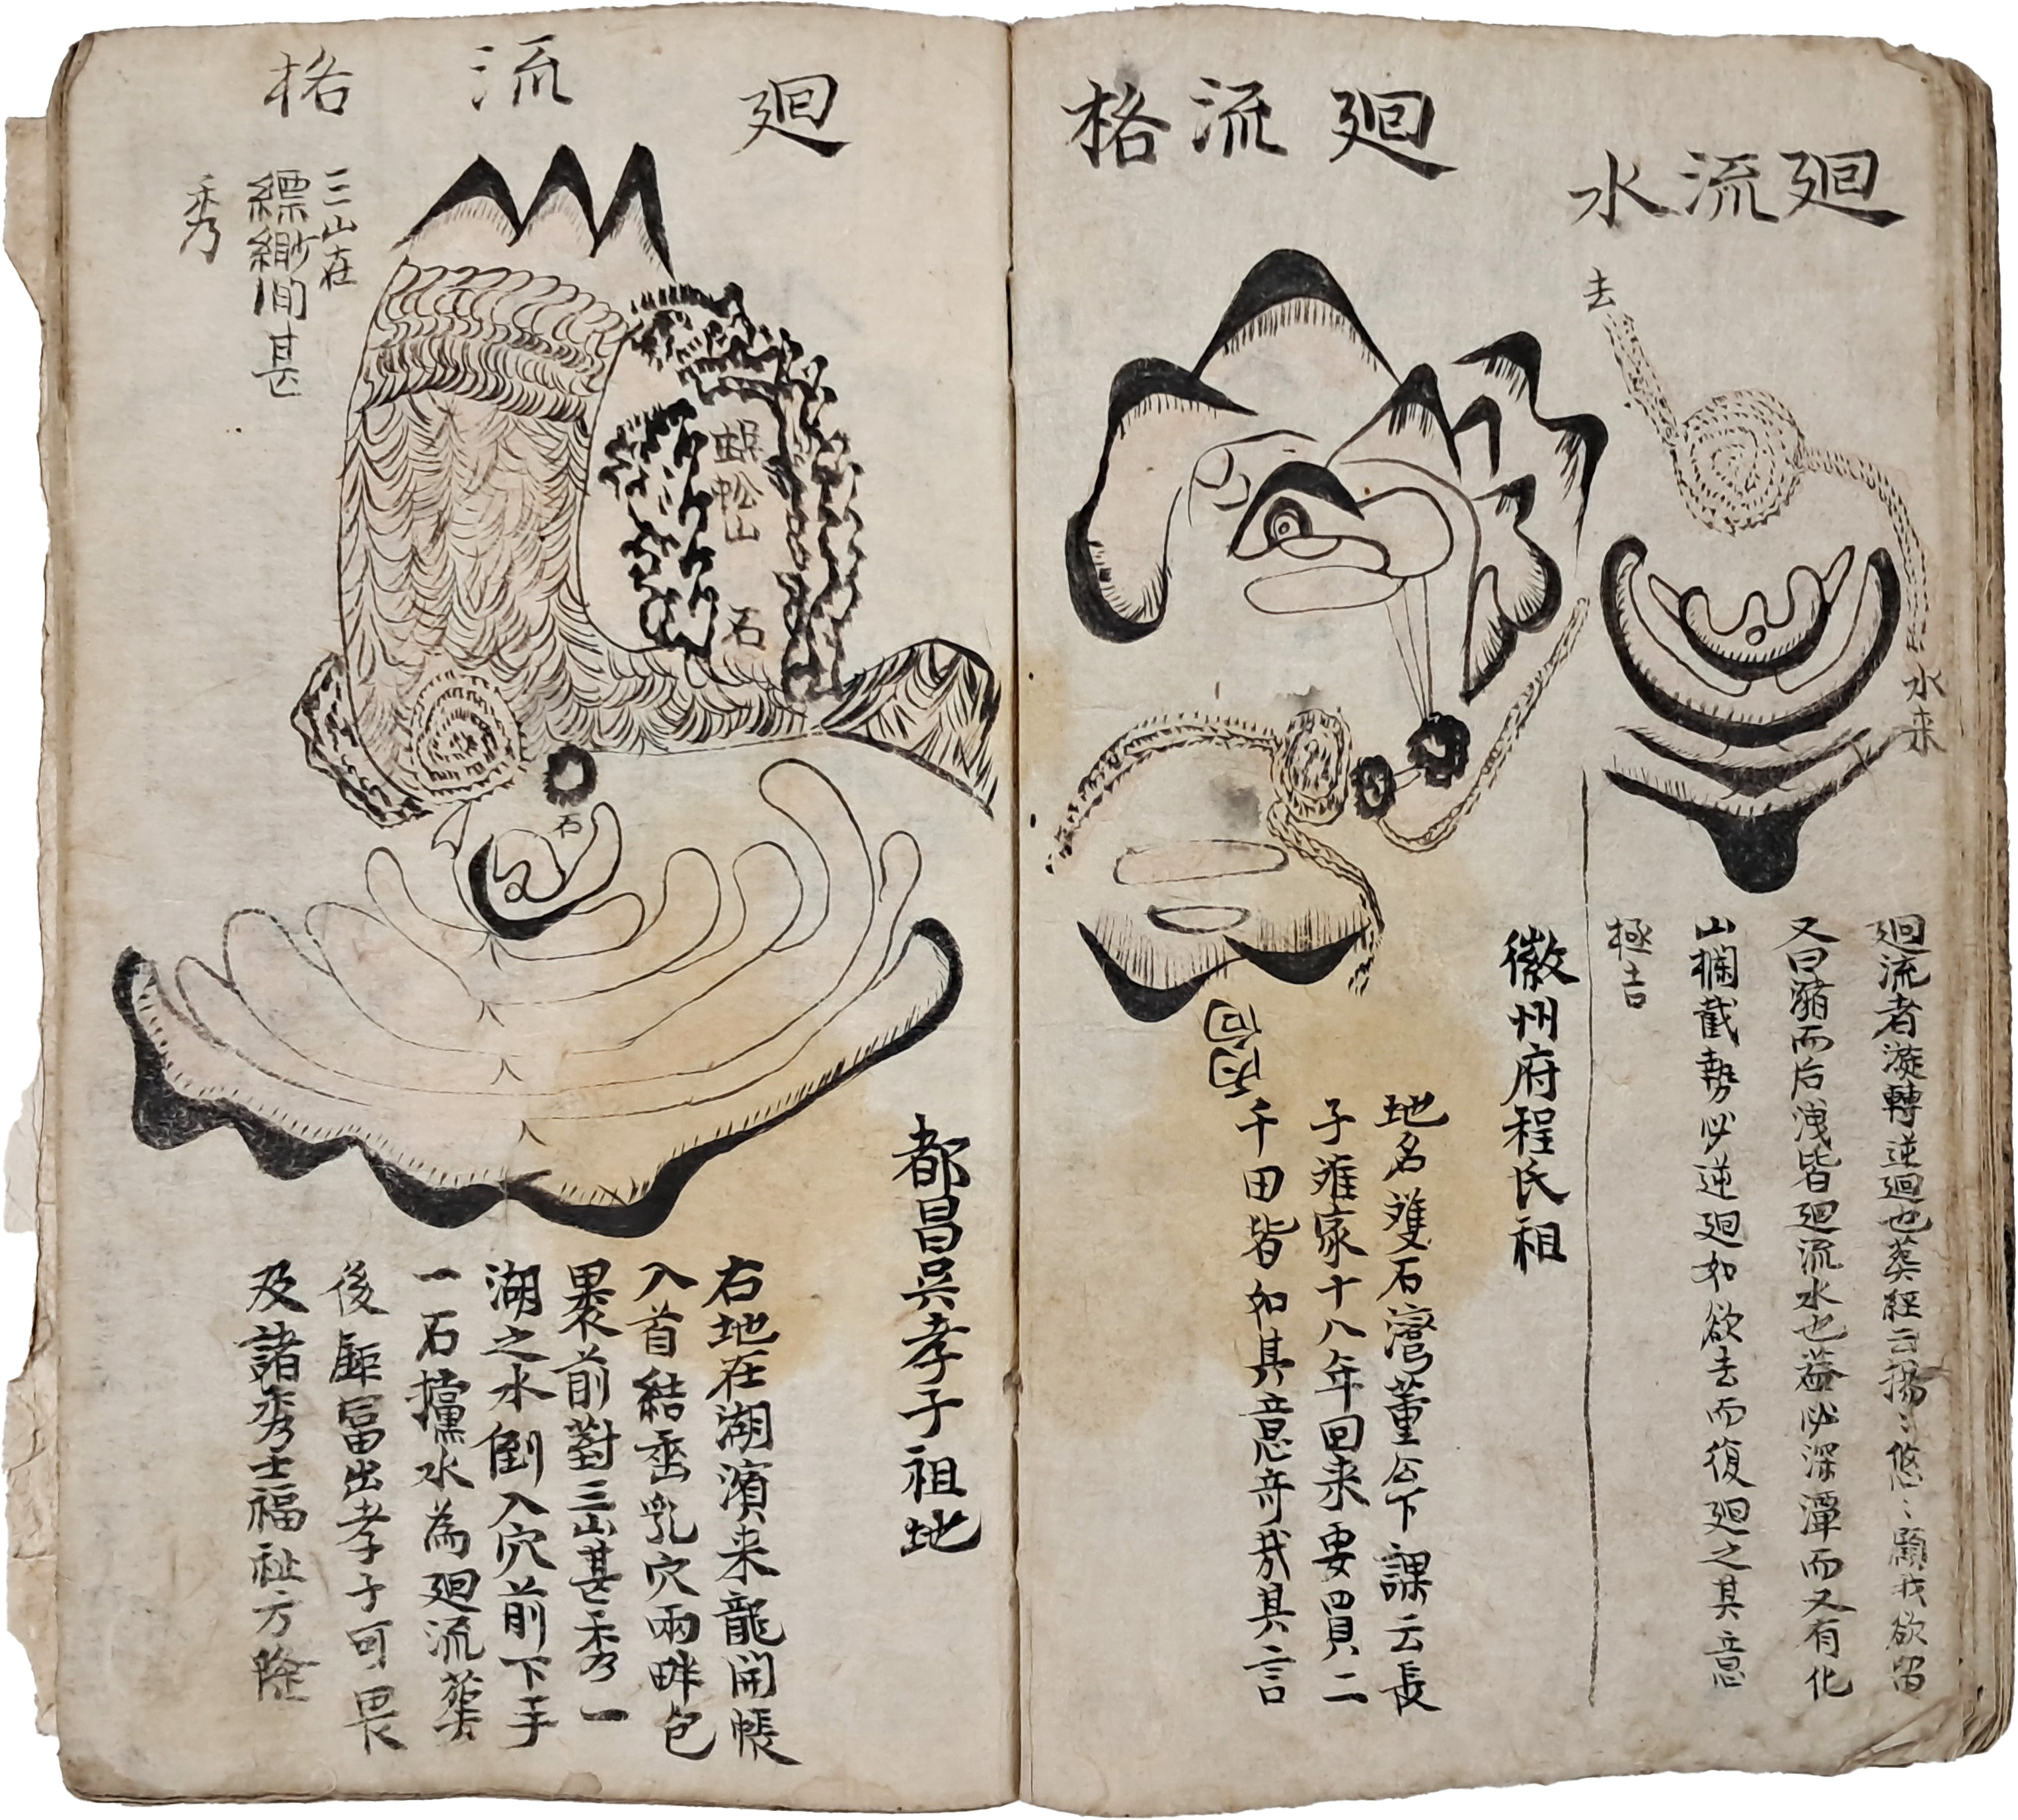 廻流水
去
水来
廻流者漩轉逆廻也葬經云揚〻悠〻顧我欲留
又曰潴而后洩皆廻流水也葢必深潭而又有化
山攔截勢必逆廻如欲去而復廻之其意
極吉
廻流格
徽州府程氏祖
地名雙石灣董公下課云長
子離家十八年回来要買二
千田皆如其意竒哉其言
丙向
廻流格
三山在
縹緲间甚
秀
蜈蚣山
石
石
都昌吳孝子祖地
右地在湖濵来龍開帳
入首結垂乳穴兩畔包
裹前對三山甚秀一
湖之水倒入穴前下手
一石擋水為廻流葬
後驟冨出孝子可畏
及諸秀士福祉方隆